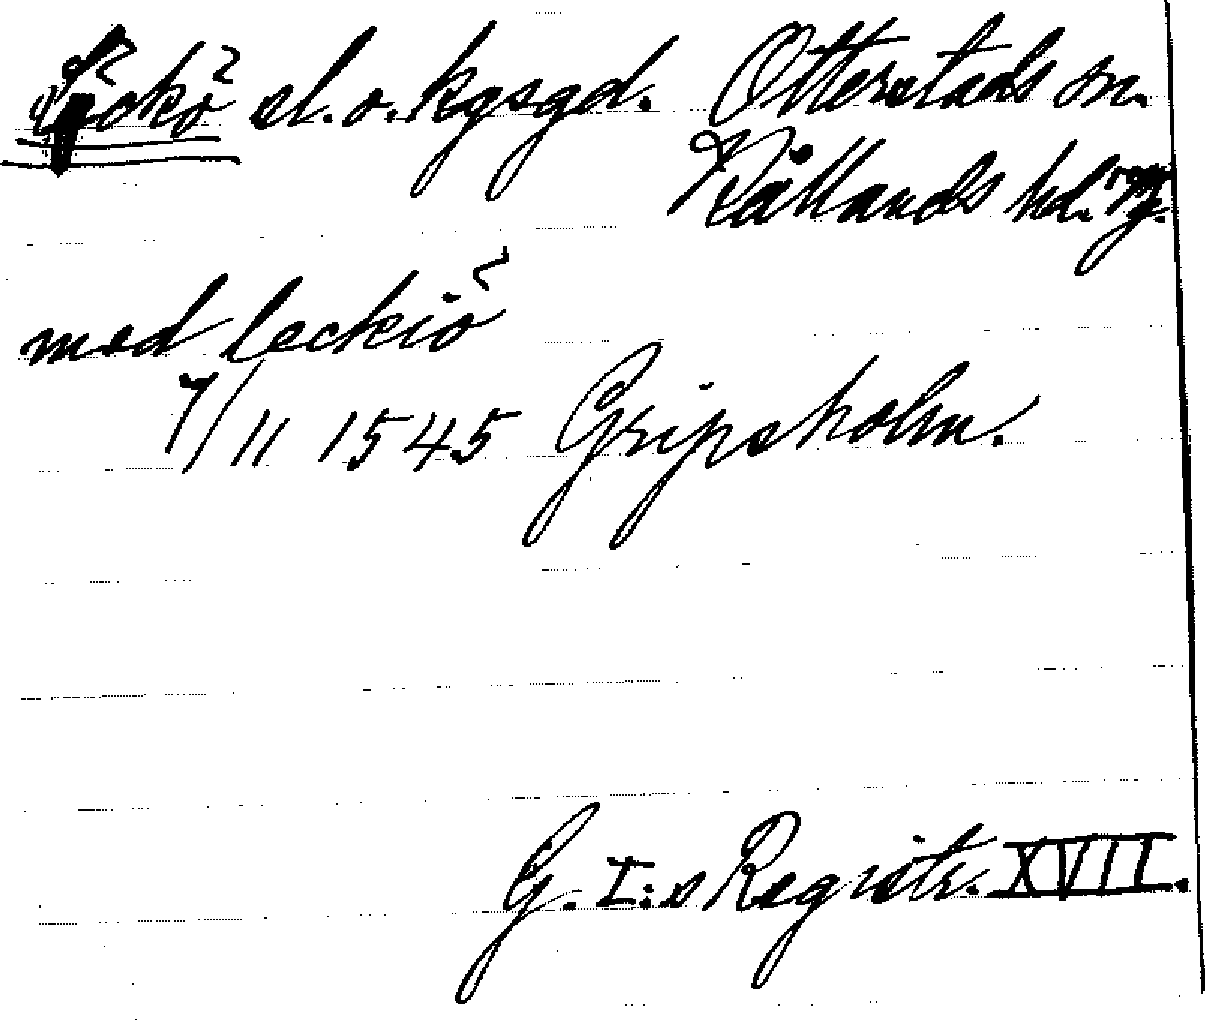 Läckö sl. o. kgsgd. Otterstads sn.
Kållands hd.
med leckiö
7/11 1545 Gripsholm.
G. I:s Registr. XVII.